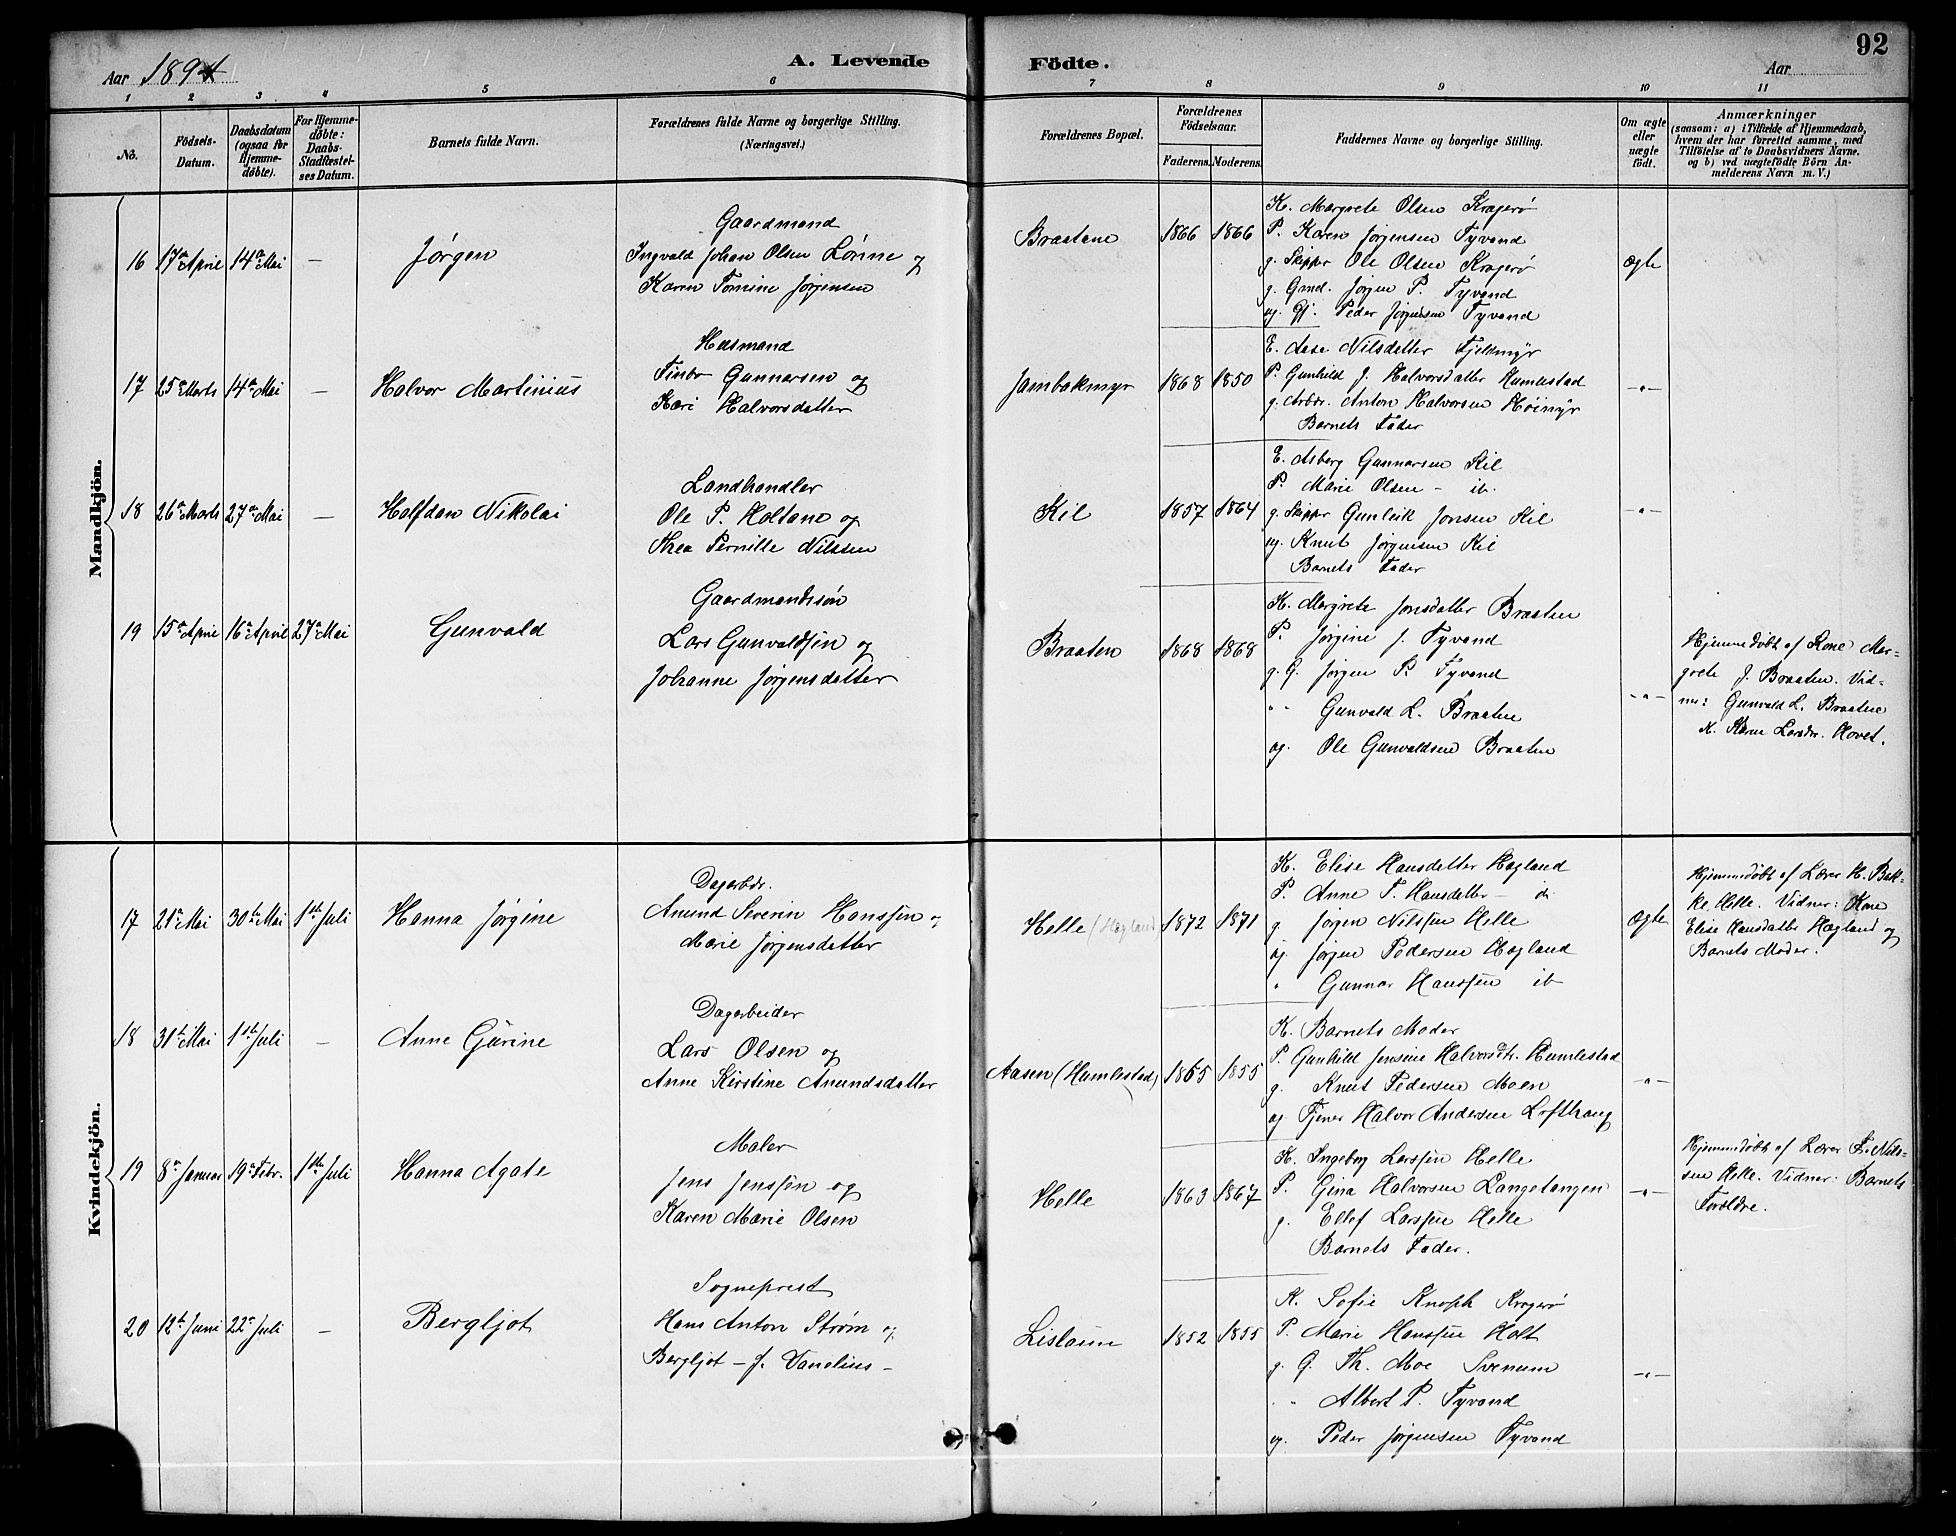 92
Aar 1894
A. Levende Födte.
Aar
1 2 3 4 5 6 7 8 9 10 11
No.
Födsels-
Datum.
Daabsdatum
(ogsaa for
Hjemme-
døbte).
For Hjemme-
døbte:
Daabs-
Stadfæstel-
ses Datum.
Barnets fulde Navn.
Forældrenes fulde Navne og borgerlige Stilling.
(Næringsvei.)
Forældrenes Bopæl.
Forældrenes
Födselsaar.
Faderens. Moderens.
Faddernes Navne og borgerlige Stilling.
Om ægte
eller
uægte
født.
Anmærkninger
(saasom: a) i Tilfælde af Hjemmedaab,
hvem der har forrettet samme, med
Tilföielse af to Daabsvidners Navne.
og b) ved uægtefödte Börn An-
melderens Navn m. V.)
Mandkjön.
16 17de April 14de Mai — Jørgen
Gaardmand
Ingvald Johan Olsen Lønne og
Karen Tomine Jørgensen
Braatene 1866 1866
K. Margrete Olsen Kragerø
P. Karen Jørgensen Tyvand
g. Skipper Ole Olsen Kragerø
g. Gmd. Jørgen P. Tyvand
og. Gj. Peder Jørgensen Tyvand
ægte
17 25de Marts 14de Mai — Halvor Martinius
Husmand
Finbo Gunnarsen og
Kari Halvorsdatter
Jambakmyr 1868 1850
E. Aase Nilsdatter Fjelkmyr
P. Gunhild J. Halvorsdatter Humlestad
g. Arbdr. Anton Halvorsen Høimyr
Barnets Fader
—"—
18 26de Marts 27de Mai — Halfdan Nikolai
Landhandler
Ole P. Holtane og
Thea Pernille Nilssen
Kil 1857 1864
E. Asberg Gunnarsen Kil
P. Marie Olsen - ib.
g. Skipper Gunleik Jonsen Kil
og. Knut Jørgensen Kil
Barnets Fader
—"—
19 15de April 16de April 27de Mai Gunvald
Gaardmandssøn
Lars Gunvaldsen og
Johanne Jørgensdatter
Braaten 1868 1868
K. Margrete Jonsdatter Braaten
P. Jørgine J. Tyvand
g. G. Jørgen P. Tyvand
" " Gunvald L. Braatene
og. Ole Gunvaldsen Braaten
—"—
Hjemmedøbt af Kone Mar-
grete J. Braaten. Vid-
ner: Gunvald L. Braatene
K. Karen Larsdr. Hovet.
Kvindekjön.
17 21de Mai 30te Mai 1ste Juli Hanna Jørgine
Dagarbdr.
Anund Severin Hanssen og
Marie Jørgensdatter
Helle (Hagland) 1872 1871
K. Elise Hansdatter Hagland
P. Anne T. Hansdatter — do
g. Jørgen Nilssen Helle
og. Jørgen Pedersen Hagland
" Gunnar Hanssen ib
ægte
Hjemmedøbt af Lærer H. Bak-
ke Helle. Vidner: Kone
Elise Hansdatter Hagland og
Barnets Moder.
18 31te Mai 1ste Juli — Anne Gurine
Dagarbeider
Lars Olsen og
Anne Kirstine Anundsdatter
Aasen (Humlestad) 1865 1855
K. Barnets Moder
P. Gunhild Jensine Halvorsdtr. Humlestad
g. Knut Pedersen Moen
og Tjener Halvor Andersen Lofthaug
—"—
19 8de Januar 19de Febr. 1ste Juli Hanna Agate
Maler
Jens Jenssen og
Karen Marie Olsen
Helle 1863 1867
K. Ingeborg Larssen Helle
P. Gina Halvorsen Langetangen
g. Ellef Larssen Helle
Barnets Fader.
—"—
Hjemmedøbt af Lærer L. Nils-
sen Helle. Vidner: Barnets
Forældre.
20 12te Juni 22de Juli — Bergljot
Sogneprest
Hans Anton Strøm og
Bergljot — f. Vanelius —
Lislaum 1852 1855
K. Sofie Knoph Kragerø
P. Marie Hanssen Holt
g. G. Th. Moe Svenum
" " Albert P. Tyvand
og. Peder Jørgensen Tyvand
—"—